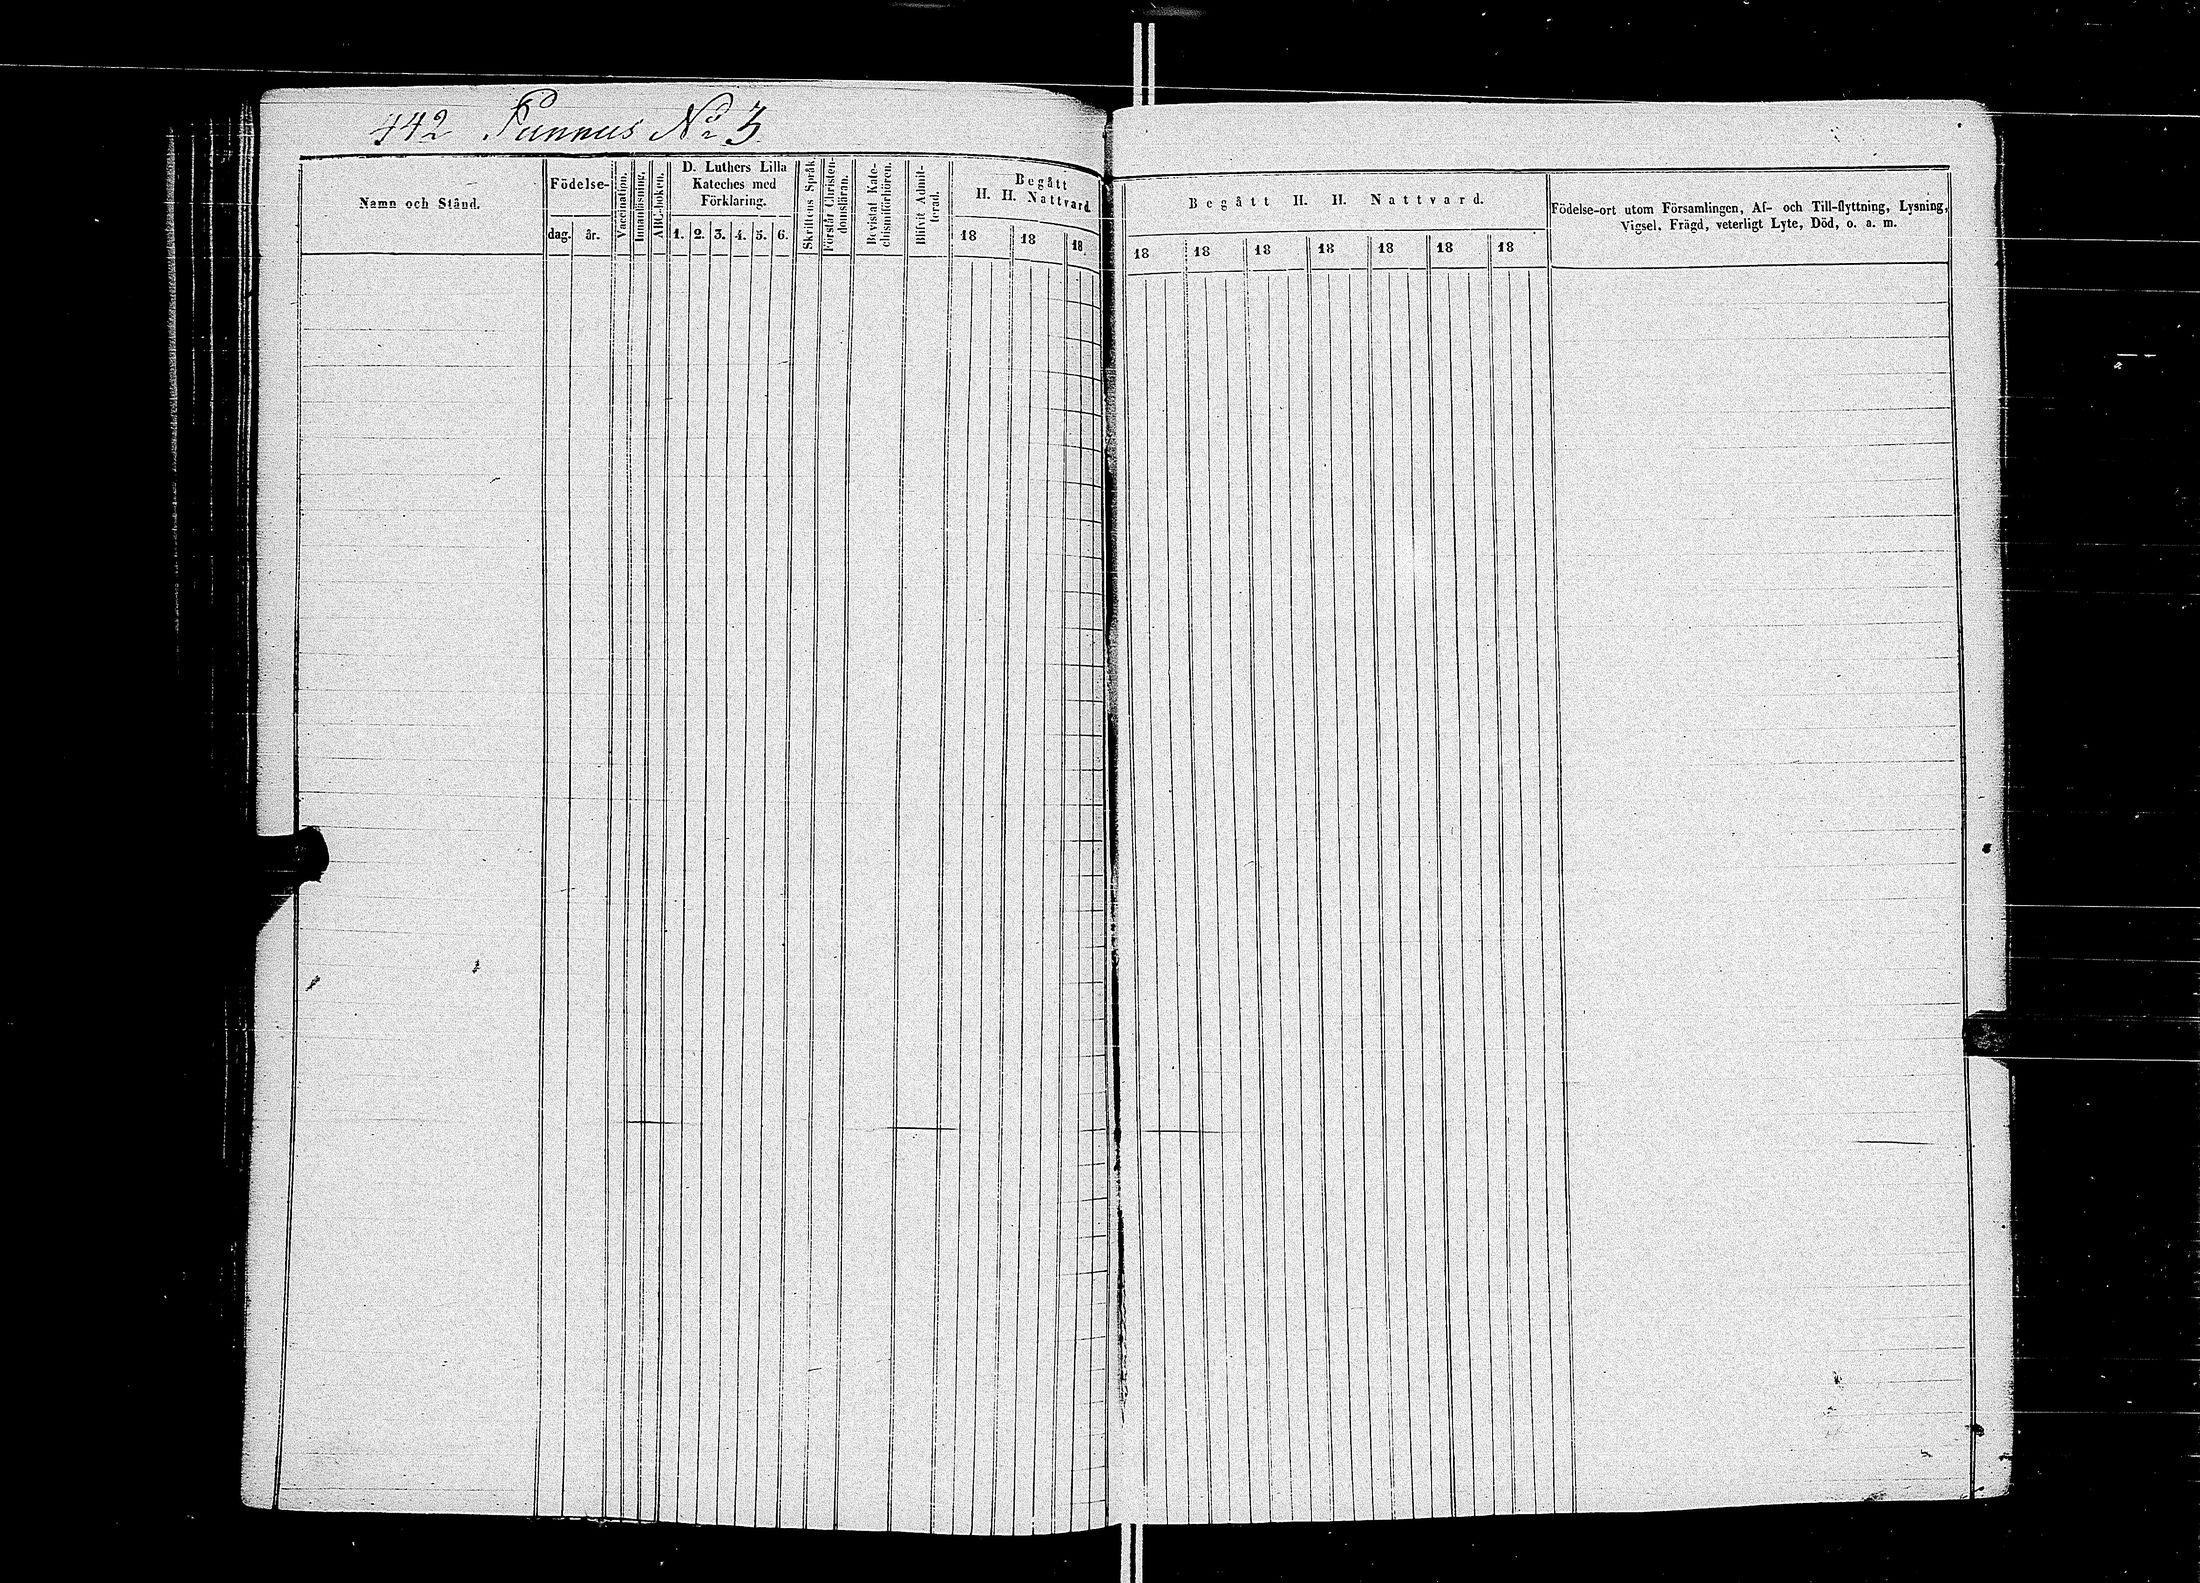 442 Punnus No 3
Namn och Stånd.
Födelse-
dag. år.
Vaccination.
Innanläsning.
ABC-boken.
D. Luthers Lilla
Kateches med
Förklaring.
1. 2. 3. 4. 5. 6.
Skriftens Språk
Förstår Christen-
domsläran.
Bevistat Kate-
chismiförhören.
Blifvit Admit-
terad.
Begått
H. H. Nattvard.
18 18 18
Begått H. H. Nattvard.
18 18 18 18 18 18 18
Födelse-ort utom Församlingen, Af- och Till-flyttning, Lysning,
Vigsel, Frägd, veterligt Lyte, Död, o. a. m.